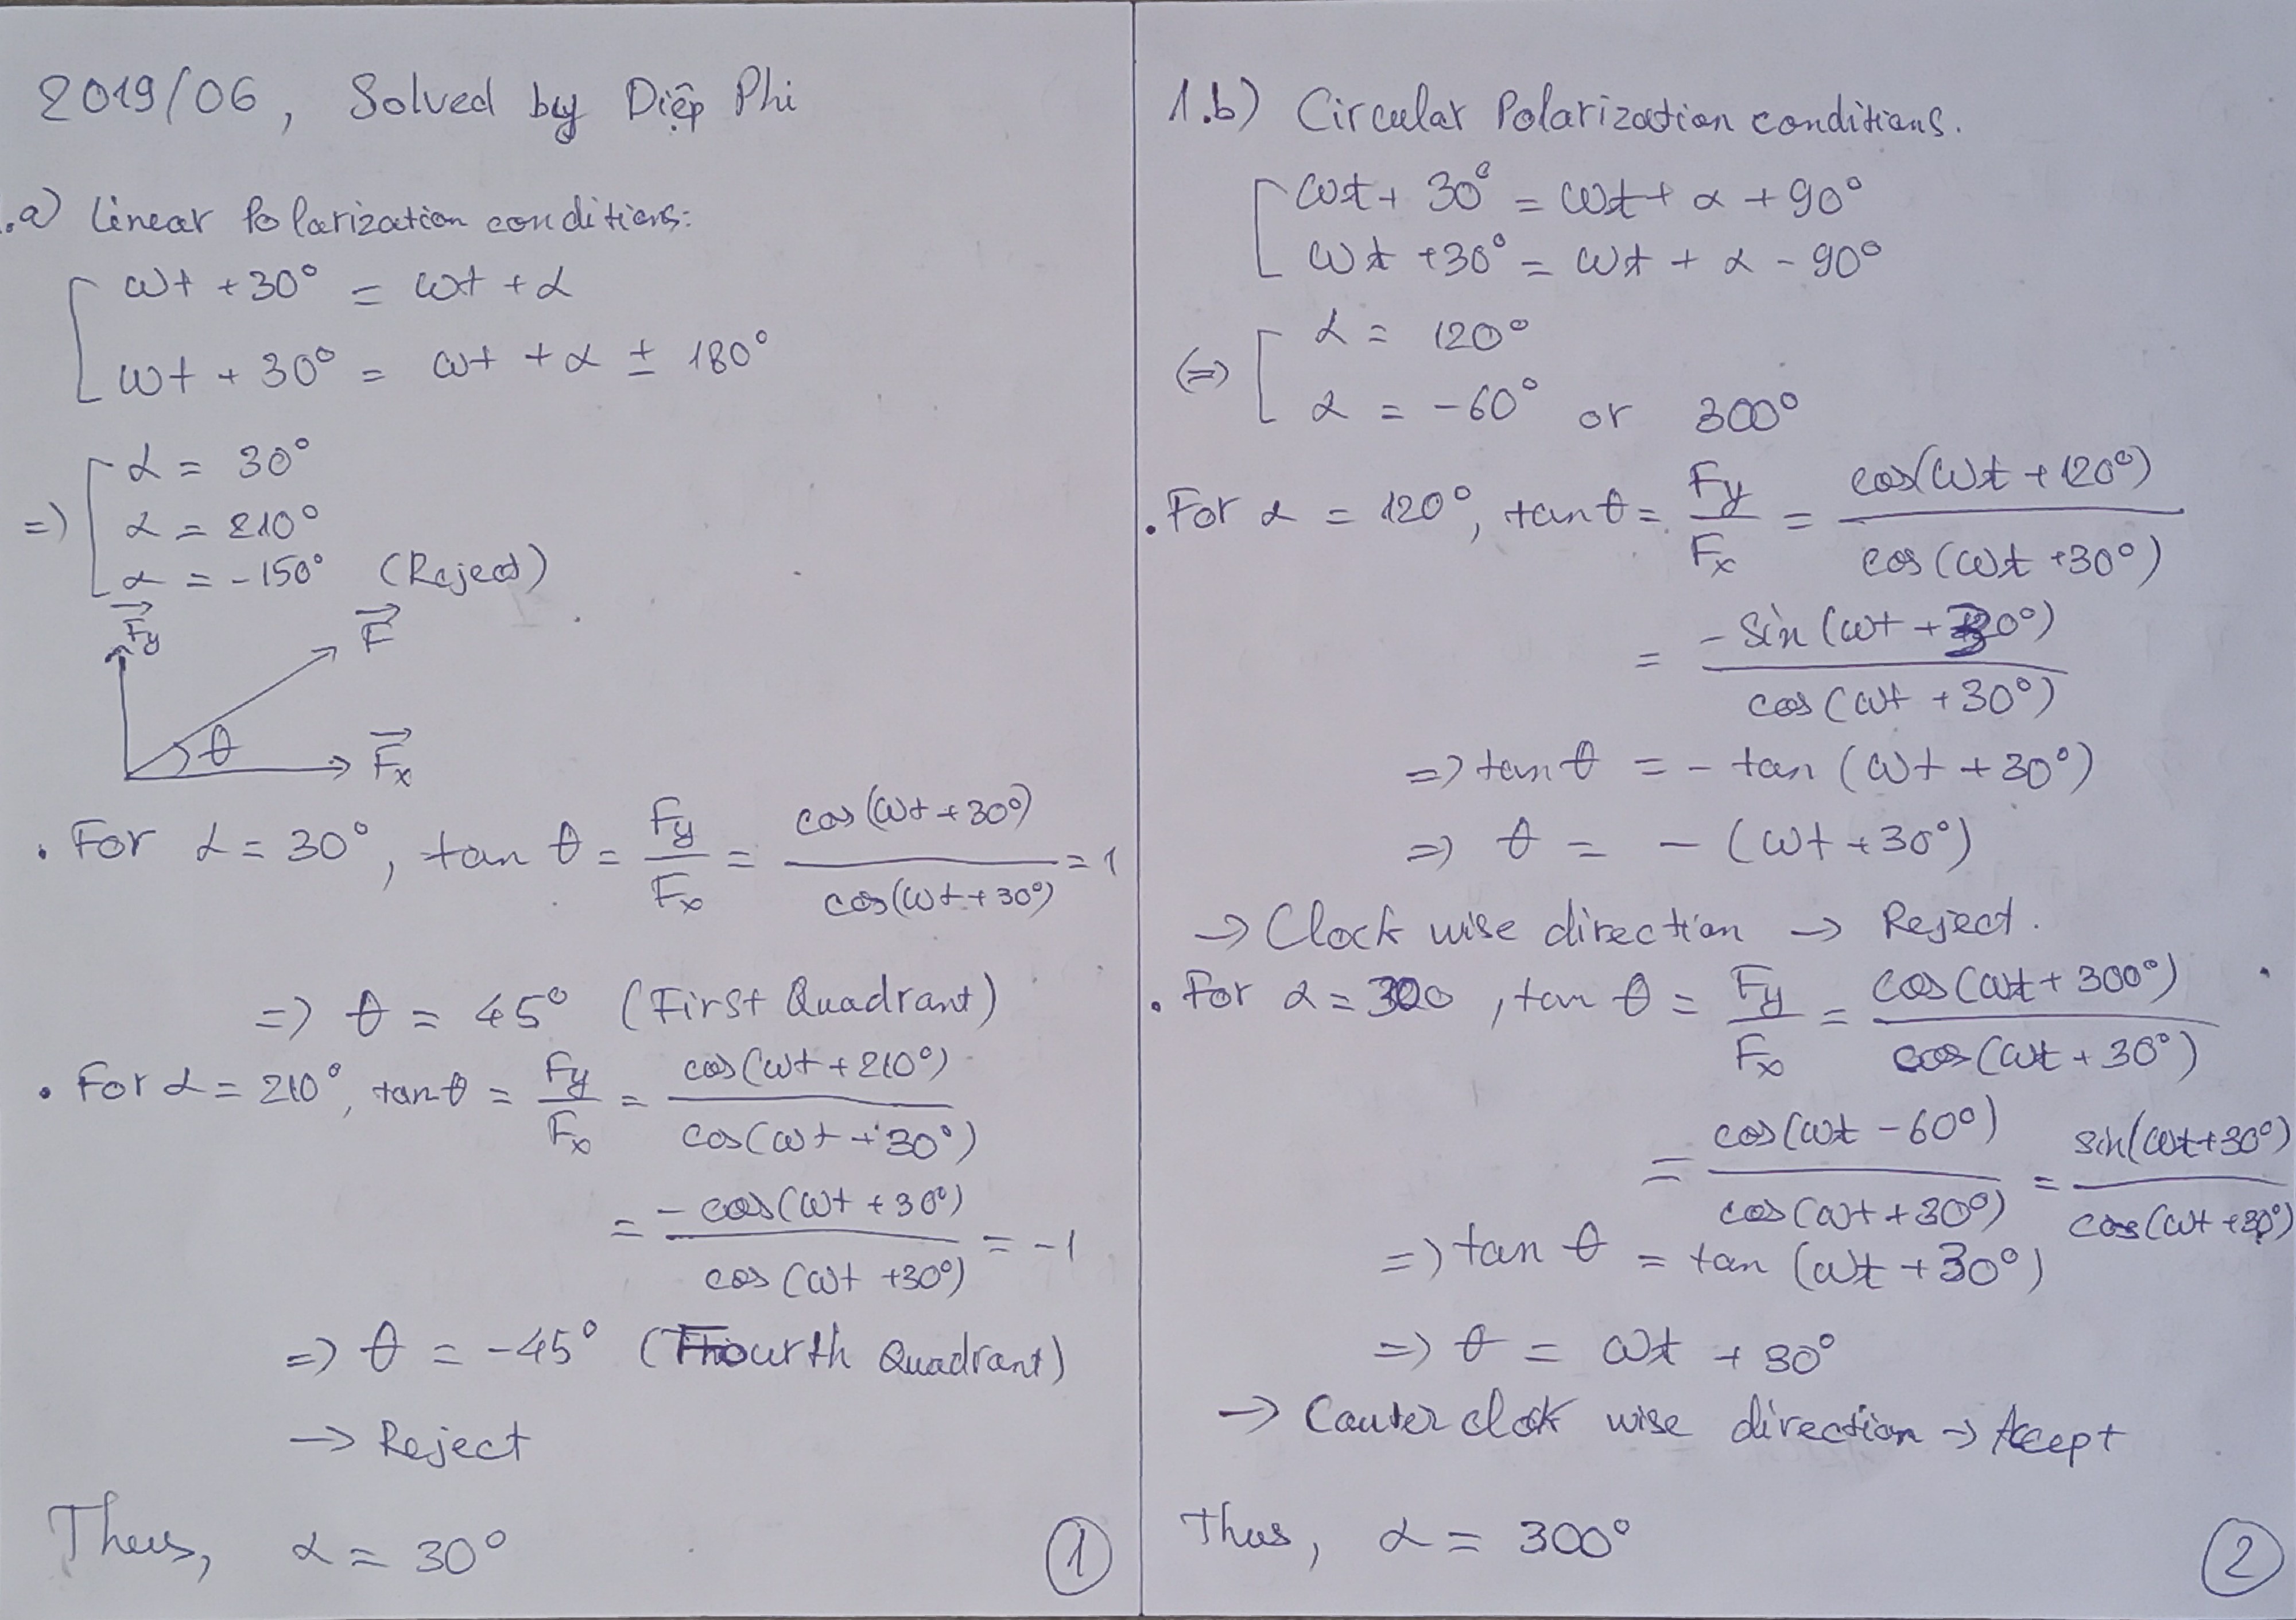 2019/06, Solved by Diệp Phi
.a) Linear Polarization conditions:
ωt + 30° = ωt + α
ωt + 30° = ωt + α ± 180°
=> α = 30°
α = 210°
α = -150° (Reject)
F⃗y F⃗
θ F⃗x
. For α = 30°, tan θ = Fy/Fx = cos(ωt + 30°)/cos(ωt + 30°) = 1
=> θ = 45° (First Quadrant)
. For α = 210°, tan θ = Fy/Fx = cos(ωt + 210°)/cos(ωt + 30°)
= -cos(ωt + 30°)/cos(ωt + 30°) = -1
=> θ = -45° (Fourth Quadrant)
-> Reject
Thus, α = 30°
1
1.b) Circular Polarization conditions.
ωt + 30° = ωt + α + 90°
ωt + 30° = ωt + α - 90°
(=) α = 120°
α = -60° or 300°
. For α = 120°, tan θ = Fy/Fx = cos(ωt + 120°)/cos(ωt + 30°)
= -sin(ωt + 30°)/cos(ωt + 30°)
=> tan θ = - tan (ωt + 30°)
=> θ = - (ωt + 30°)
-> Clock wise direction -> Reject.
. For α = 300, tan θ = Fy/Fx = cos(ωt + 300°)/cos(ωt + 30°)
= cos(ωt - 60°)/cos(ωt + 30°) = sin(ωt + 30°)/cos(ωt + 30°)
=> tan θ = tan (ωt + 30°)
=> θ = ωt + 30°
-> Couter clock wise direction -> Accept
Thus, α = 300°
2